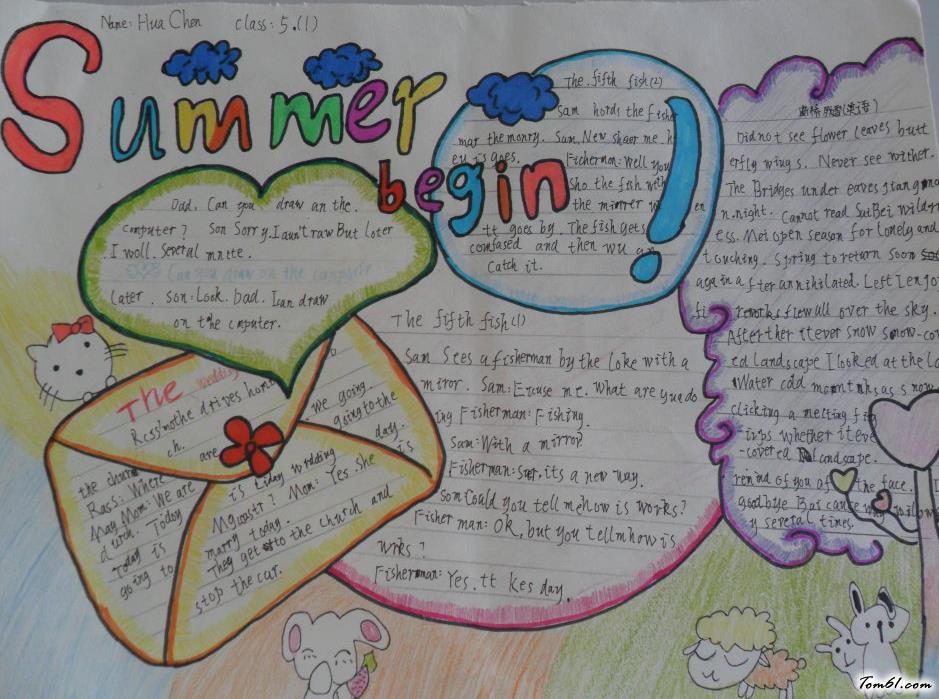 Name: Hua Chen class: 5.(1)
Summer
begin!
Dad. Can you draw an the.
computer? Son Sorry. I aun't raw But loter
I woll. Several mntte.
Can you draw on the computer
later. son: Look. bad. I can draw
on the cmputer.
The fifth fish(2)
Sam hords the fish
mar the monry. Sam, New shaer me h
ey is goes. Fisherman: Well you
sho the fish with
the mirrer w en
tt goes by. The fish gets
comfased and then wu an
Catch it.
The fifth fish(1)
Sam Sees a fisherman by the loke with a
miror. Sam: Excuse me. What are you do
ing Fisherman: Fishing.
Sam: With a mirrop
Fisherman: Sur, its a new way.
Som Could you tell me how is works?
Fisher man: OK, but you tell m how is
wrks?
Fisherman: Yes. tt kes day.
The wedding
Rass's nothe drives home
ch. are
we going
going to the
day.
is
the church
Rass: Where
May Mom: We are
durch. Today
Today is
going to
is today wedding
Mom: Yes. She
marry today.
They get to the church and
stop the car.
断桥残雪(英语)
Did not see flower leaves butt
erfly wing s. Never see wither.
The Bridges under eaves jiang nan
n.night. Cannot read Su Bei wildern
ess. Met open season for lonely and
touching. Spring to return soon
again a fter annihilated. Left I enjoy
fi reworks flew all over the sky.
After ther it ever snow snow-cov
ed landscape I looked at the la
Water cdd mountnh as snow
clicking a melting
irps whether it eve
-covered landscape.
remind of you of the face.
goodbye Bai cause way willow
y several times.
Tom61.com